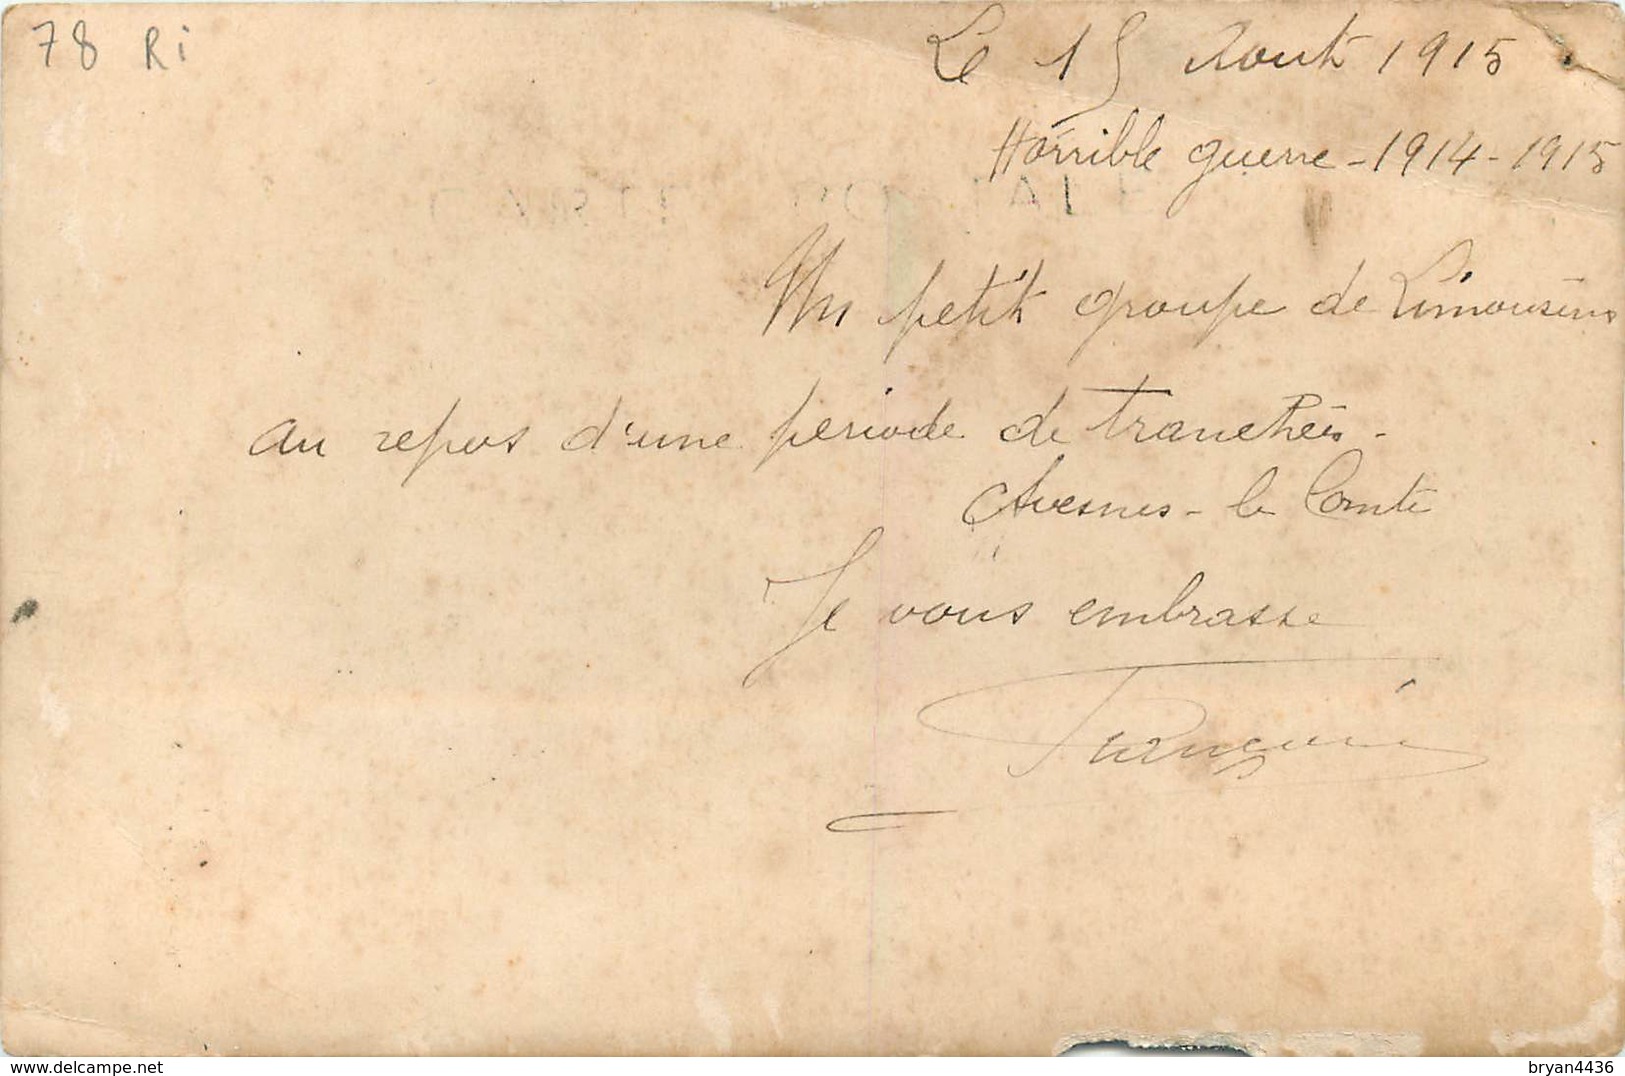 78 Ri
Le 15 Aout 1915
Horrible guerre - 1914 - 1915
Un petit groupe de Limousins
au repos d'une periode de tranchées.
Avesnes - le Comte
Je vous embrasse
delcampe.net
bryan4436